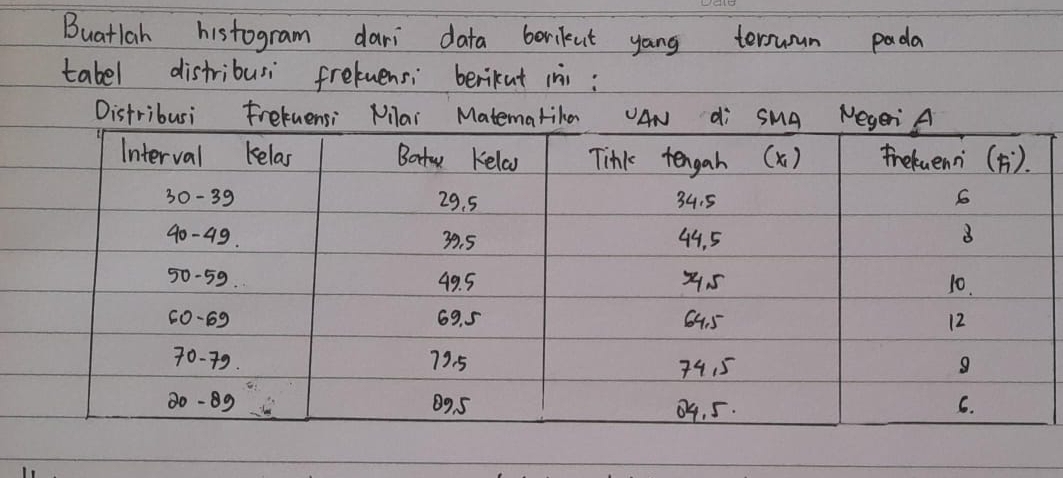 Date
Buatlah histogram dari data berikut yang tersusun pada
tabel distribusi frekuensi berikut ini :
Distribusi Frekuensi Nilai Matematika UAN di SMA Negeri A
Interval Kelas Batas Kelas Titik tengah (xi) Frekuensi (fi).
30-39 29,5 34,5 6
40-49. 39,5 44,5 8
50-59.. 49.5 54,5 10.
60-69 69,5 64,5 12
70-79. 79,5 74,5 9
80-89 89,5 84,5. 6.